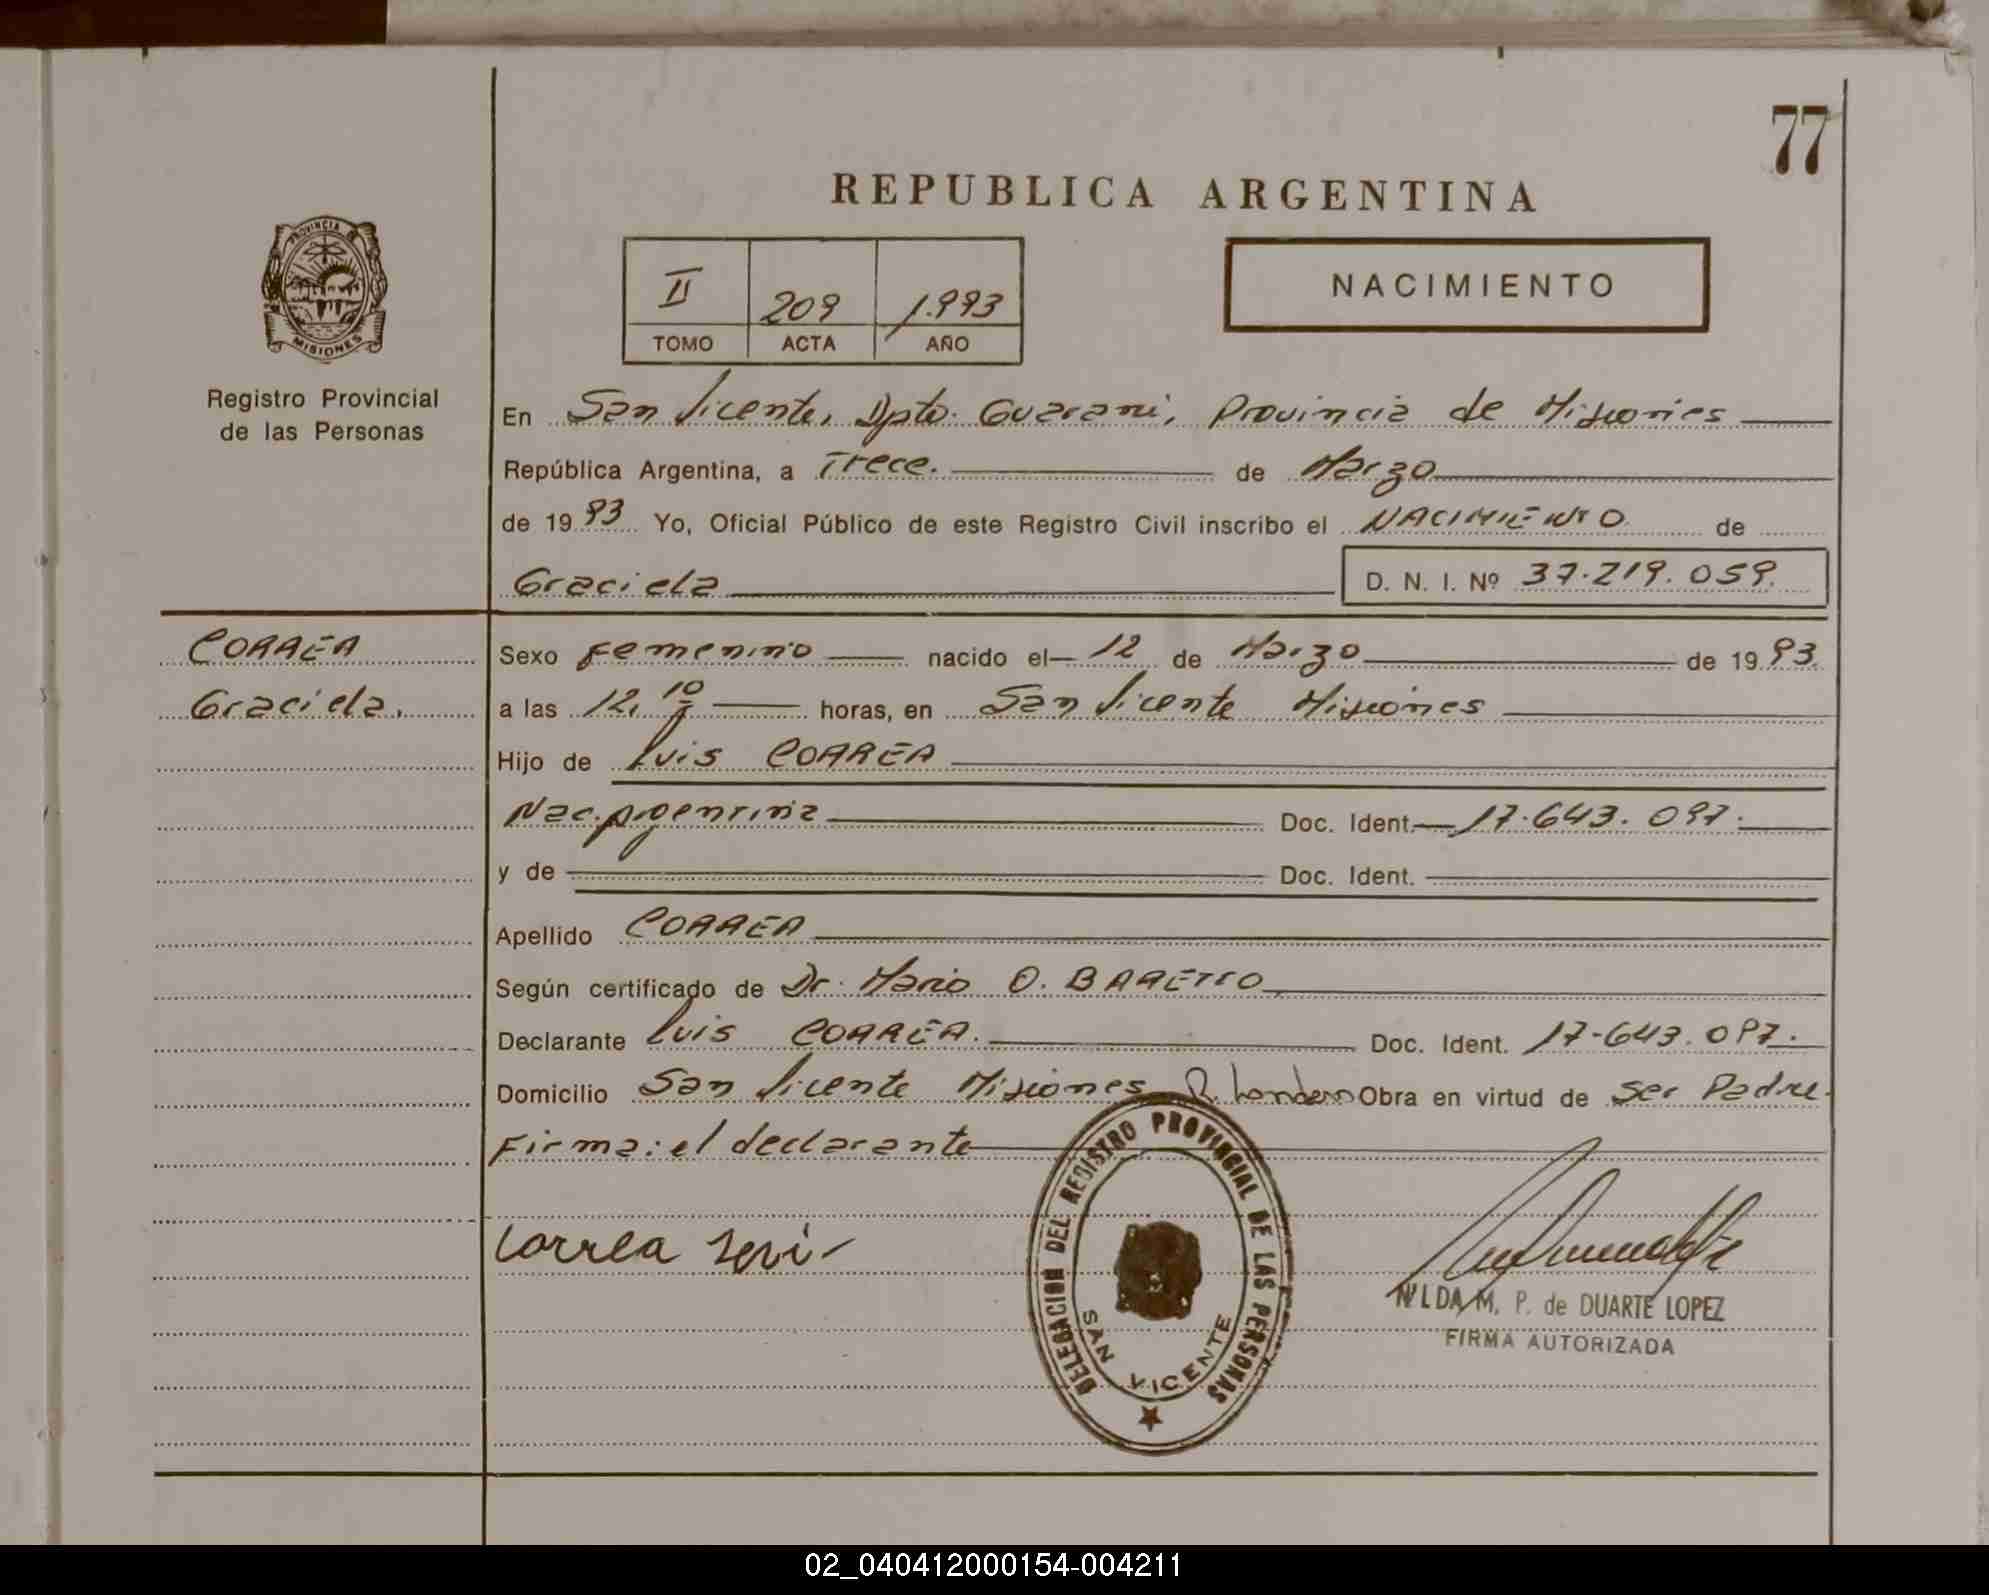 77
REPUBLICA ARGENTINA
PROVINCIA DE
MISIONES
Registro Provincial
de las Personas
II 209 1.993
TOMO ACTA AÑO
NACIMIENTO
En San Vicente, Dpto. Guarani, Provincia de Misiones
República Argentina, a Trece. de Marzo
de 1993 Yo, Oficial Público de este Registro Civil inscribo el NACIMIENTO de
Graciela D. N. I. Nº 37.219.059.
CORREA
Graciela.
Sexo Femenino nacido el 12 de Marzo de 1993.
a las 12,10 horas, en San Vicente Misiones
Hijo de Luis CORREA
Nac. Argentina Doc. Ident. 17.643.097.
y de Doc. Ident.
Apellido CORREA
Según certificado de Dr. Mario O. BARETTO
Declarante Luis CORREA. Doc. Ident. 17.643.097.
Domicilio San Vicente Misiones Obra en virtud de ser Padre.
Firma: el declarante
Correa
DELEGACION DEL REGISTRO PROVINCIAL DE LAS PERSONAS
SAN VICENTE
NILDA M. P. de DUARTE LOPEZ
FIRMA AUTORIZADA
02_040412000154-004211